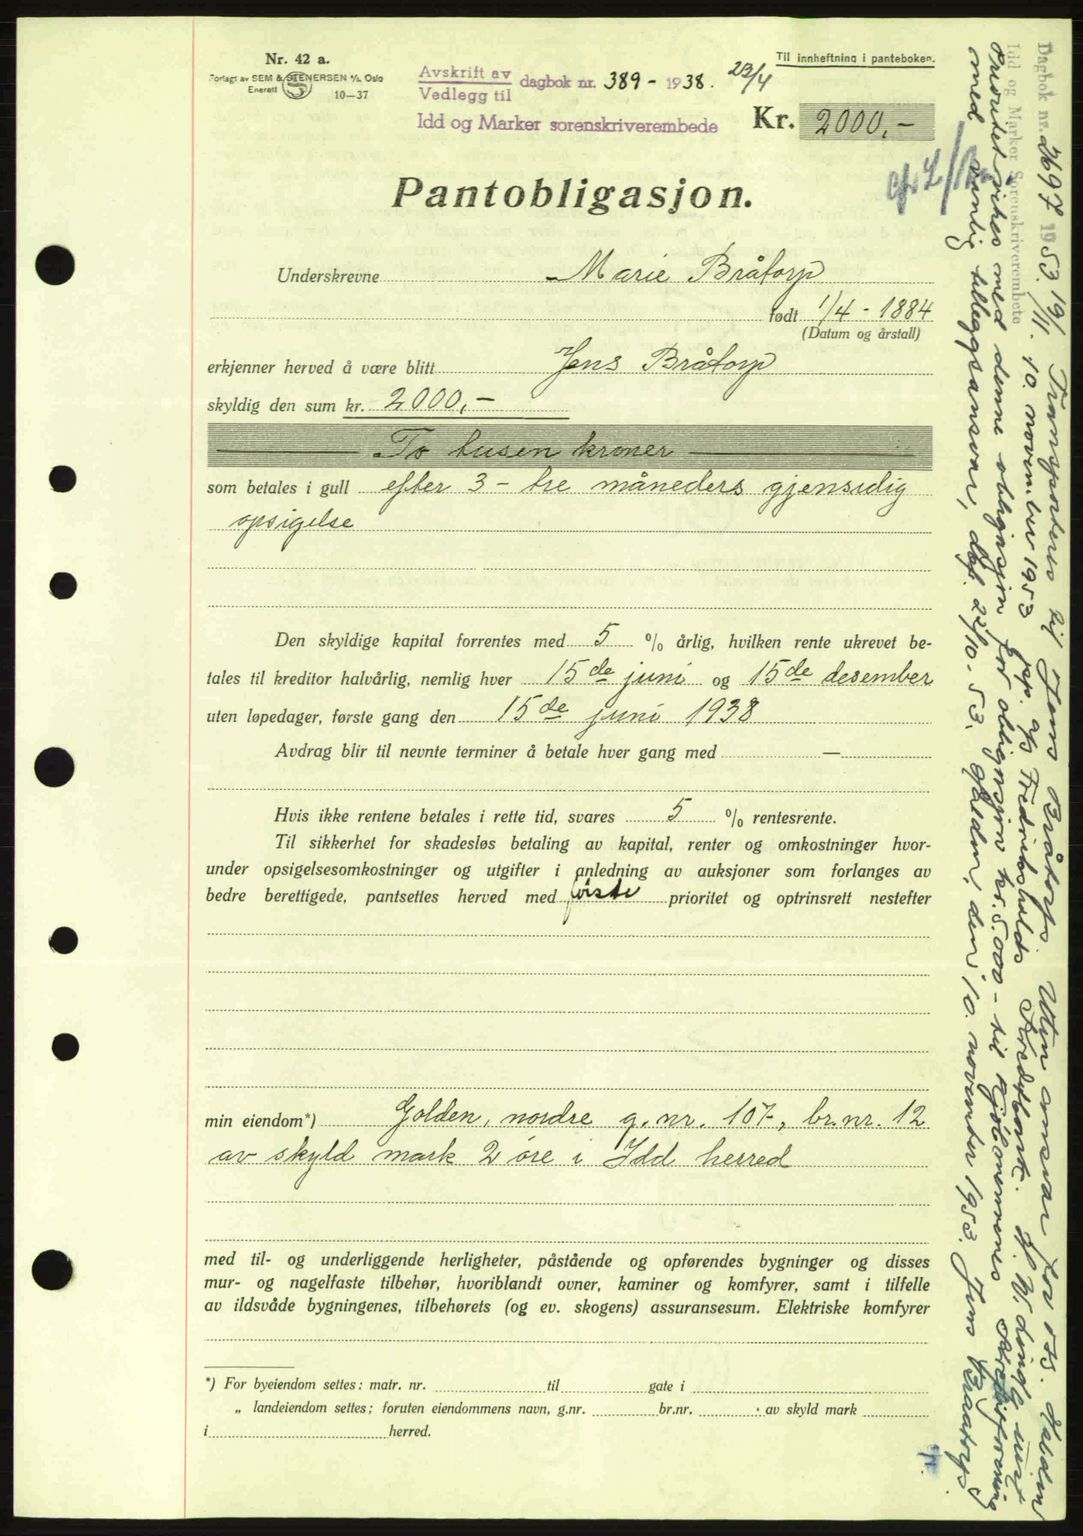 Nr. 42 a.
Forlagt av SEM & STENERSEN A/S, Oslo
Enerett 10—37
Avskrift av
Vedlegg til
dagbok nr. 389 - 1938. 23/4
Idd og Marker sorenskriverembede
Til innheftning i panteboken.
Kr. 2000,-
Pantobligasjon.
Underskrevne Marie Bråtorp
født 1/4 - 1884
(Datum og årstall)
erkjenner herved å være blitt Jens Bråtorp
skyldig den sum kr. 2000,-
To tusen kroner
som betales i gull efter 3 - tre måneders gjensidig
opsigelse
Den skyldige kapital forrentes med 5 % årlig, hvilken rente ukrevet be-
tales til kreditor halvårlig, nemlig hver 15de juni og 15de desember
uten løpedager, første gang den 15de juni 1938
Avdrag blir til nevnte terminer å betale hver gang med —
Hvis ikke rentene betales i rette tid, svares 5 % rentesrente.
Til sikkerhet for skadesløs betaling av kapital, renter og omkostninger hvor-
under opsigelsesomkostninger og utgifter i anledning av auksjoner som forlanges av
bedre berettigede, pantsettes herved med første prioritet og optrinsrett nestefter
min eiendom*) Golden, nordre g. nr. 107, br. nr. 12
av skyld mark 2 øre i Idd herred
med til- og underliggende herligheter, påstående og opførendes bygninger og disses
mur- og nagelfaste tilbehør, hvoriblandt ovner, kaminer og komfyrer, samt i tilfelle
av ildsvåde bygningenes, tilbehørets (og ev. skogens) assuransesum. Elektriske komfyrer
*) For byeiendom settes: matr. nr. til gate i
„ landeiendom settes; foruten eiendommens navn, g.nr. br.nr. av skyld mark
i herred.
Dagbok nr. 2697 1953. 19/11.
Idd og Marker Sorenskriverembete
Transporteres til Jens Bråtorp. Uten ansvar for oss. Halden
10. november 1953 pp. Fredrikshalds
prioritet vikes med denne obligasjon for obligasjon kr. 5.000 - til
med vanlig tilleggsansvar, dat. 21/10-53. Halden, den 10. november 1953. Jens Braatorp